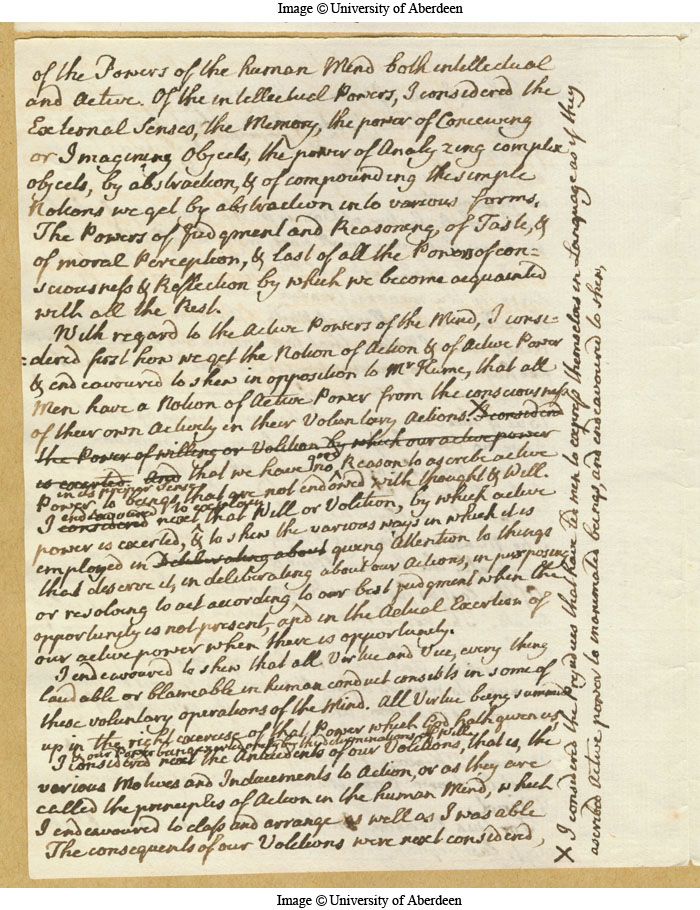 Image © University of Aberdeen
of the Powers of the human Mind both intellectual
and Active. Of the intellectual Powers, I considered the
External Senses, the Memory, the power of Conceiving
or Imagining Objects, the power of Analyzing complex
objects, by abstraction, & of compounding the simple
Notions we get by abstraction into various forms.
The Powers of Judgment and Reasoning, of Taste, &
of moral Perception, & last of all the Power of con=
sciousness & Reflection by which we become acquainted
with all the Rest.
With regard to the Active Powers of the Mind, I consi=
=dered first how we get the Notion of Action & of Active Power
& endeavoured to shew in opposition to Mr Hume, that all
Men have a Notion of Active Power from the consciousness
of their own Activity in their Voluntary Actions. I considered
the Power of willing or Volition by which our active power
is exerted. And that we have no good Reason to ascribe active
in its proper sense
Power to beings that are not endowed with thought & Will.
endeavoured to explain
I considered next that Will or Volition, by which active
power is exerted, & to shew the various ways in which it is
employed in Deliberating about giving Attention to things
that deserve it, in deliberating about our Actions, in purposing
or resolving to act according to our best judgment when the
opportunity is not present, and in the Actual Exertion of
our active power when there is opportunity.
I endeavoured to shew that all Virtue and Vice, every thing
laudable or blameable in human conduct consists in some of
these voluntary operations of the Mind. All Virtue being summed
up in the right exercise of that Power which God hath given us,
& our Power being exerted by the determinations of Will
I considered next the Antecedents of our Volitions, that is, the
various Motives and Inducements to Action, or as they are
called the principles of Action in the human Mind, which
I endeavoured to class and arrange as well as I was able
The consequents of our Volitions were next considered,
X I considered the Prejudices that have led men to express themselves in Language as if they
ascribed Active power to inanimated beings, and endeavoured to shew,
Image © University of Aberdeen